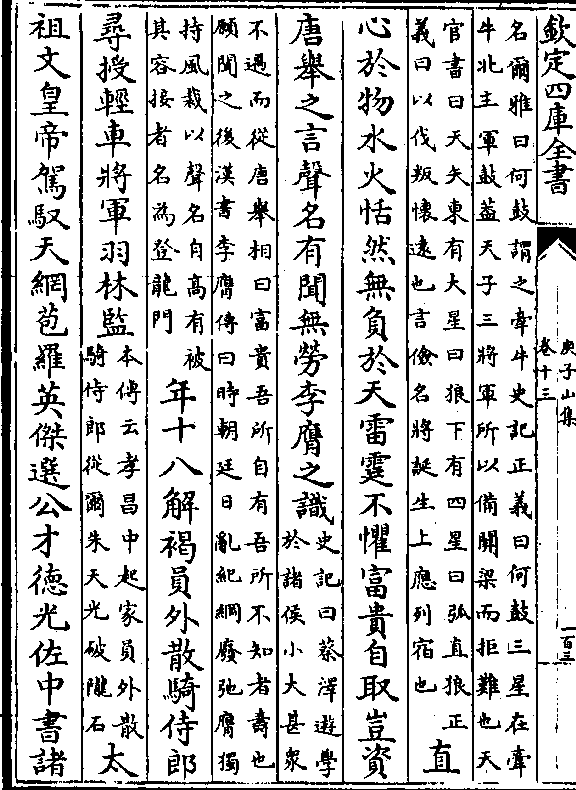 欽定四庫全書
庾子山集
卷十三
一百三
名爾雅曰何鼓謂之牽牛史記正義曰何鼓三星在牽
牛北主軍鼓蓋天子三將軍所以備關梁而拒難也天
官書曰天矢東有大星曰狼下有四星曰弧直狼正
義曰以伐叛懷遠也言儉名將誕生上應列宿也
直
心於物水火恬然無負於天雷霆不懼富貴自取豈資
唐舉之言聲名有聞無勞李膺之識
史記曰蔡澤遊學
於諸侯小大甚衆
不遇而從唐舉相曰富貴吾所自有吾所不知者壽也
願聞之後漢書李膺傳曰時朝廷日亂紀綱廢弛膺獨
持風裁以聲名自高有被
其容接者名為登龍門
年十八解褐員外散騎侍郎
尋授輕車將軍羽林監
本傳云孝昌中起家員外散
騎侍郎從爾朱天光破隴石
太
祖文皇帝駕馭天網苞羅英傑選公才德光佐中書諸